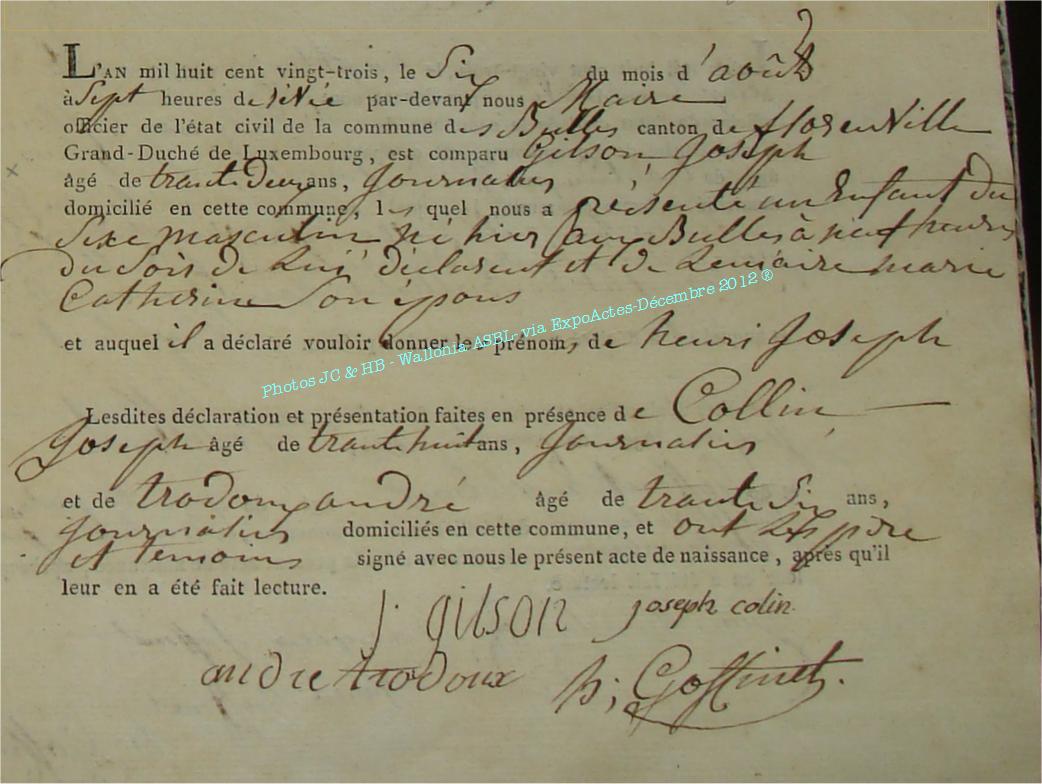 L'AN mil huit cent vingt-trois, le Six du mois d'août
à Sept heures de par-devant nous Maire
officier de l'état civil de la commune des Bulles canton de florenville
Grand-Duché de Luxembourg, est comparu Gilson Joseph
âgé de trante deux ans, Journalies
domicilié en cette commune, lequel nous a présenté un Enfant du
Sexe masculin né hier aux Bulles à neuf heures
du Soir de Lui déclarent et de Lemaire marie
Catherine Son épous
et auquel il a déclaré vouloir donner les prénoms de henri Joseph
Lesdites déclaration et présentation faites en présence de Collin
Joseph âgé de trante huit ans, Journalies
et de trodoux andré âgé de trante Six ans,
Journalies domiciliés en cette commune, et ont Les pere
et temoins signé avec nous le présent acte de naissance, après qu'il
leur en a été fait lecture.
j. gilson joseph colin
andre trodoux h; Goffinet.
Photos JC & HB - Wallonia ASBL- via ExpoActes-Décembre 2012 ®